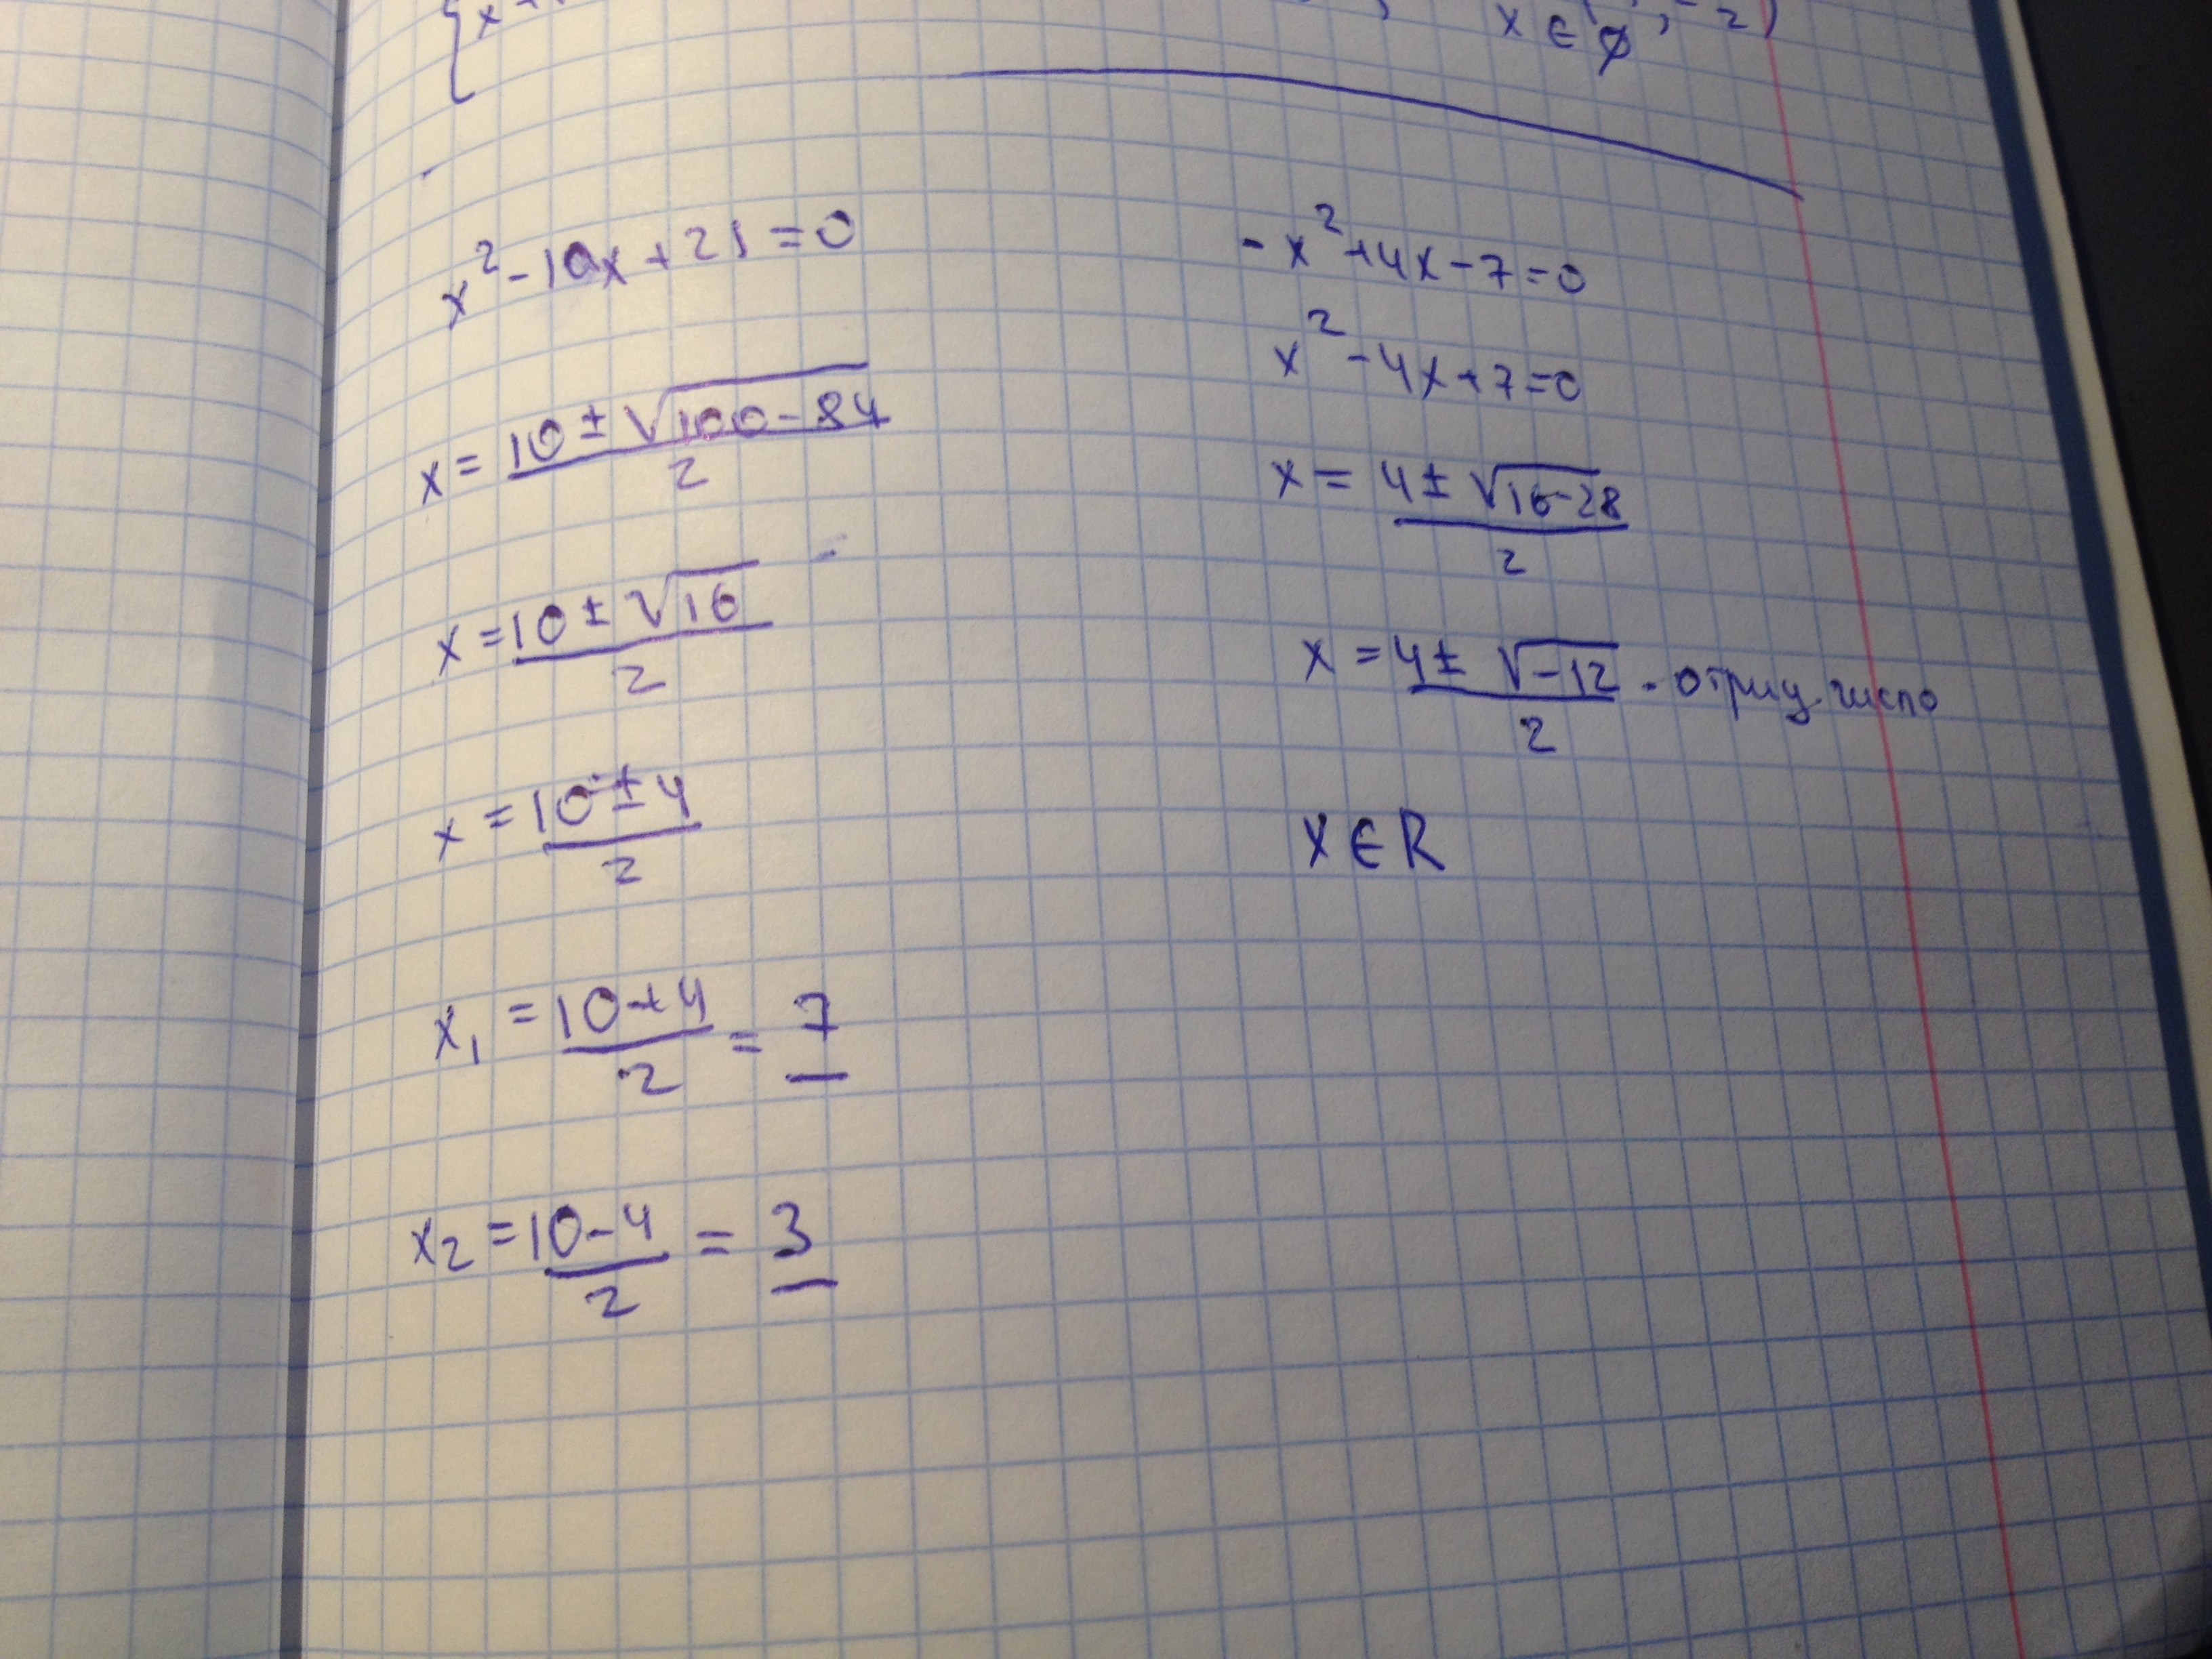 x ∈ ∅
x² - 10x + 21 = 0
x = (10 ± √(100 - 84)) / 2
x = (10 ± √16) / 2
x = (10 ± 4) / 2
x₁ = (10 + 4) / 2 = 7
x₂ = (10 - 4) / 2 = 3
- x² + 4x - 7 = 0
x² - 4x + 7 = 0
x = (4 ± √(16 - 28)) / 2
x = (4 ± √(-12)) / 2 - отриц. число
x ∈ R